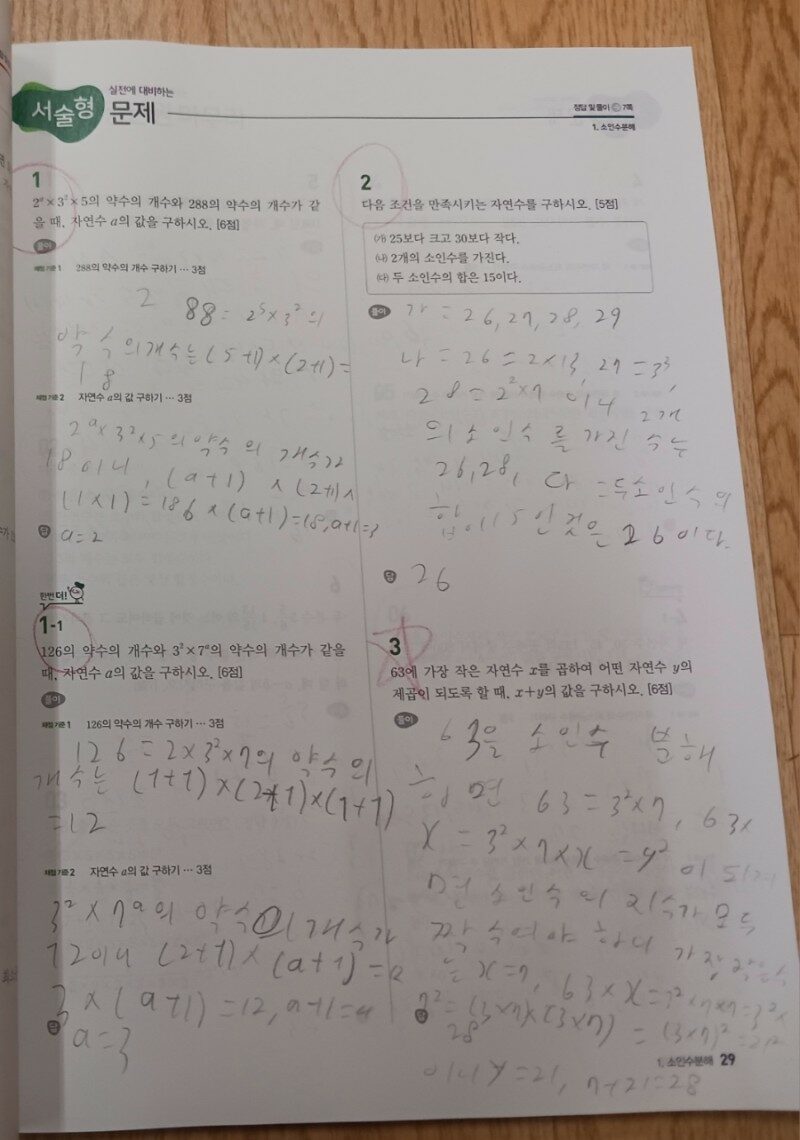 실전에 대비하는
서술형 문제
정답 및 풀이 7쪽
1. 소인수분해
1
2ᵃ×3²×5의 약수의 개수와 288의 약수의 개수가 같
을 때, 자연수 a의 값을 구하시오. [6점]
풀이
채점 기준 1 288의 약수의 개수 구하기 … 3점
2 88 = 2⁵×3²의
약수의개수는 (5+1)×(2+1)=
18
채점 기준 2 자연수 a의 값 구하기 … 3점
2ᵃ×3²×5의 약수의 개수가
18이니, (a+1)×(2+1)×
(1×1)=186×(a+1)=18, a+1=3
답 a=2
한번 더!
1-1
126의 약수의 개수와 3²×7ᵃ의 약수의 개수가 같을
때, 자연수 a의 값을 구하시오. [6점]
풀이
채점 기준 1 126의 약수의 개수 구하기 … 3점
126=2×3²×7의 약수의
개수는 (1+1)×(2+1)×(1+1)
=12
채점 기준 2 자연수 a의 값 구하기 … 3점
3²×7ᵃ의 약수의개수가
12이니 (2+1)×(a+1)=12
3×(a+1)=12, a+1=4
답 a=3
2
다음 조건을 만족시키는 자연수를 구하시오. [5점]
㈎ 25보다 크고 30보다 작다.
㈏ 2개의 소인수를 가진다.
㈐ 두 소인수의 합은 15이다.
풀이 가=26, 27, 28, 29
나=26=2×13, 27=3³,
28=2²×7 이니 2개
의 소인수를 가진 수는
26, 28, 다=두소인수의
합이15인것은 26이다.
답 26
3
63에 가장 작은 자연수 x를 곱하여 어떤 자연수 y의
제곱이 되도록 할 때, x+y의 값을 구하시오. [6점]
풀이
63을 소인수 분해
하면 63=3²×7, 63×
x=3²×7×x=y²이 되려
면 소인수의 지수가 모두
짝수여야 하니 가장 작은수
는 x=7, 63×x=3²×7×7=3²×
7²=(3×7)×(3×7)=(3×7)²=21²
답 28
이니 y=21, 7+21=28
1. 소인수분해 29